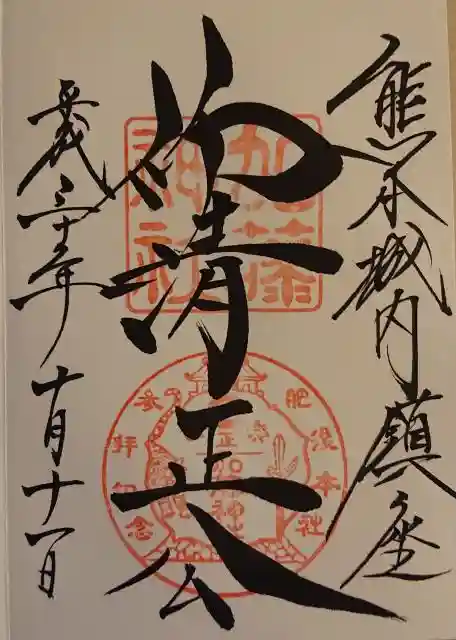 熊本城内鎮座
仰清正公
平成三十年十月十一日
加藤神社
参拝記念